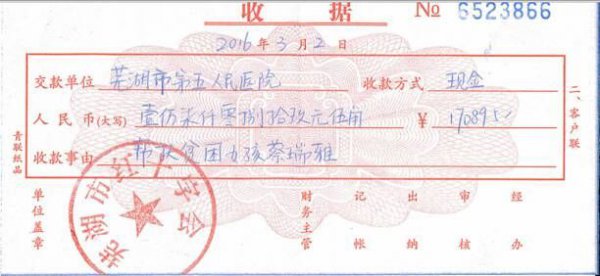 收 据
№ 6523866
2016 年 3 月 2 日
交款单位 芜湖市第五人民医院 收款方式 现金
人民币(大写) 壹万柒仟零捌拾玖元伍角 ¥ 17089.50
收款事由 帮扶贫困女孩蔡瑞雅
二、客户联
青联纸品
单位盖章
芜湖市红十字会
财务主管
记帐
出纳
审核
经办